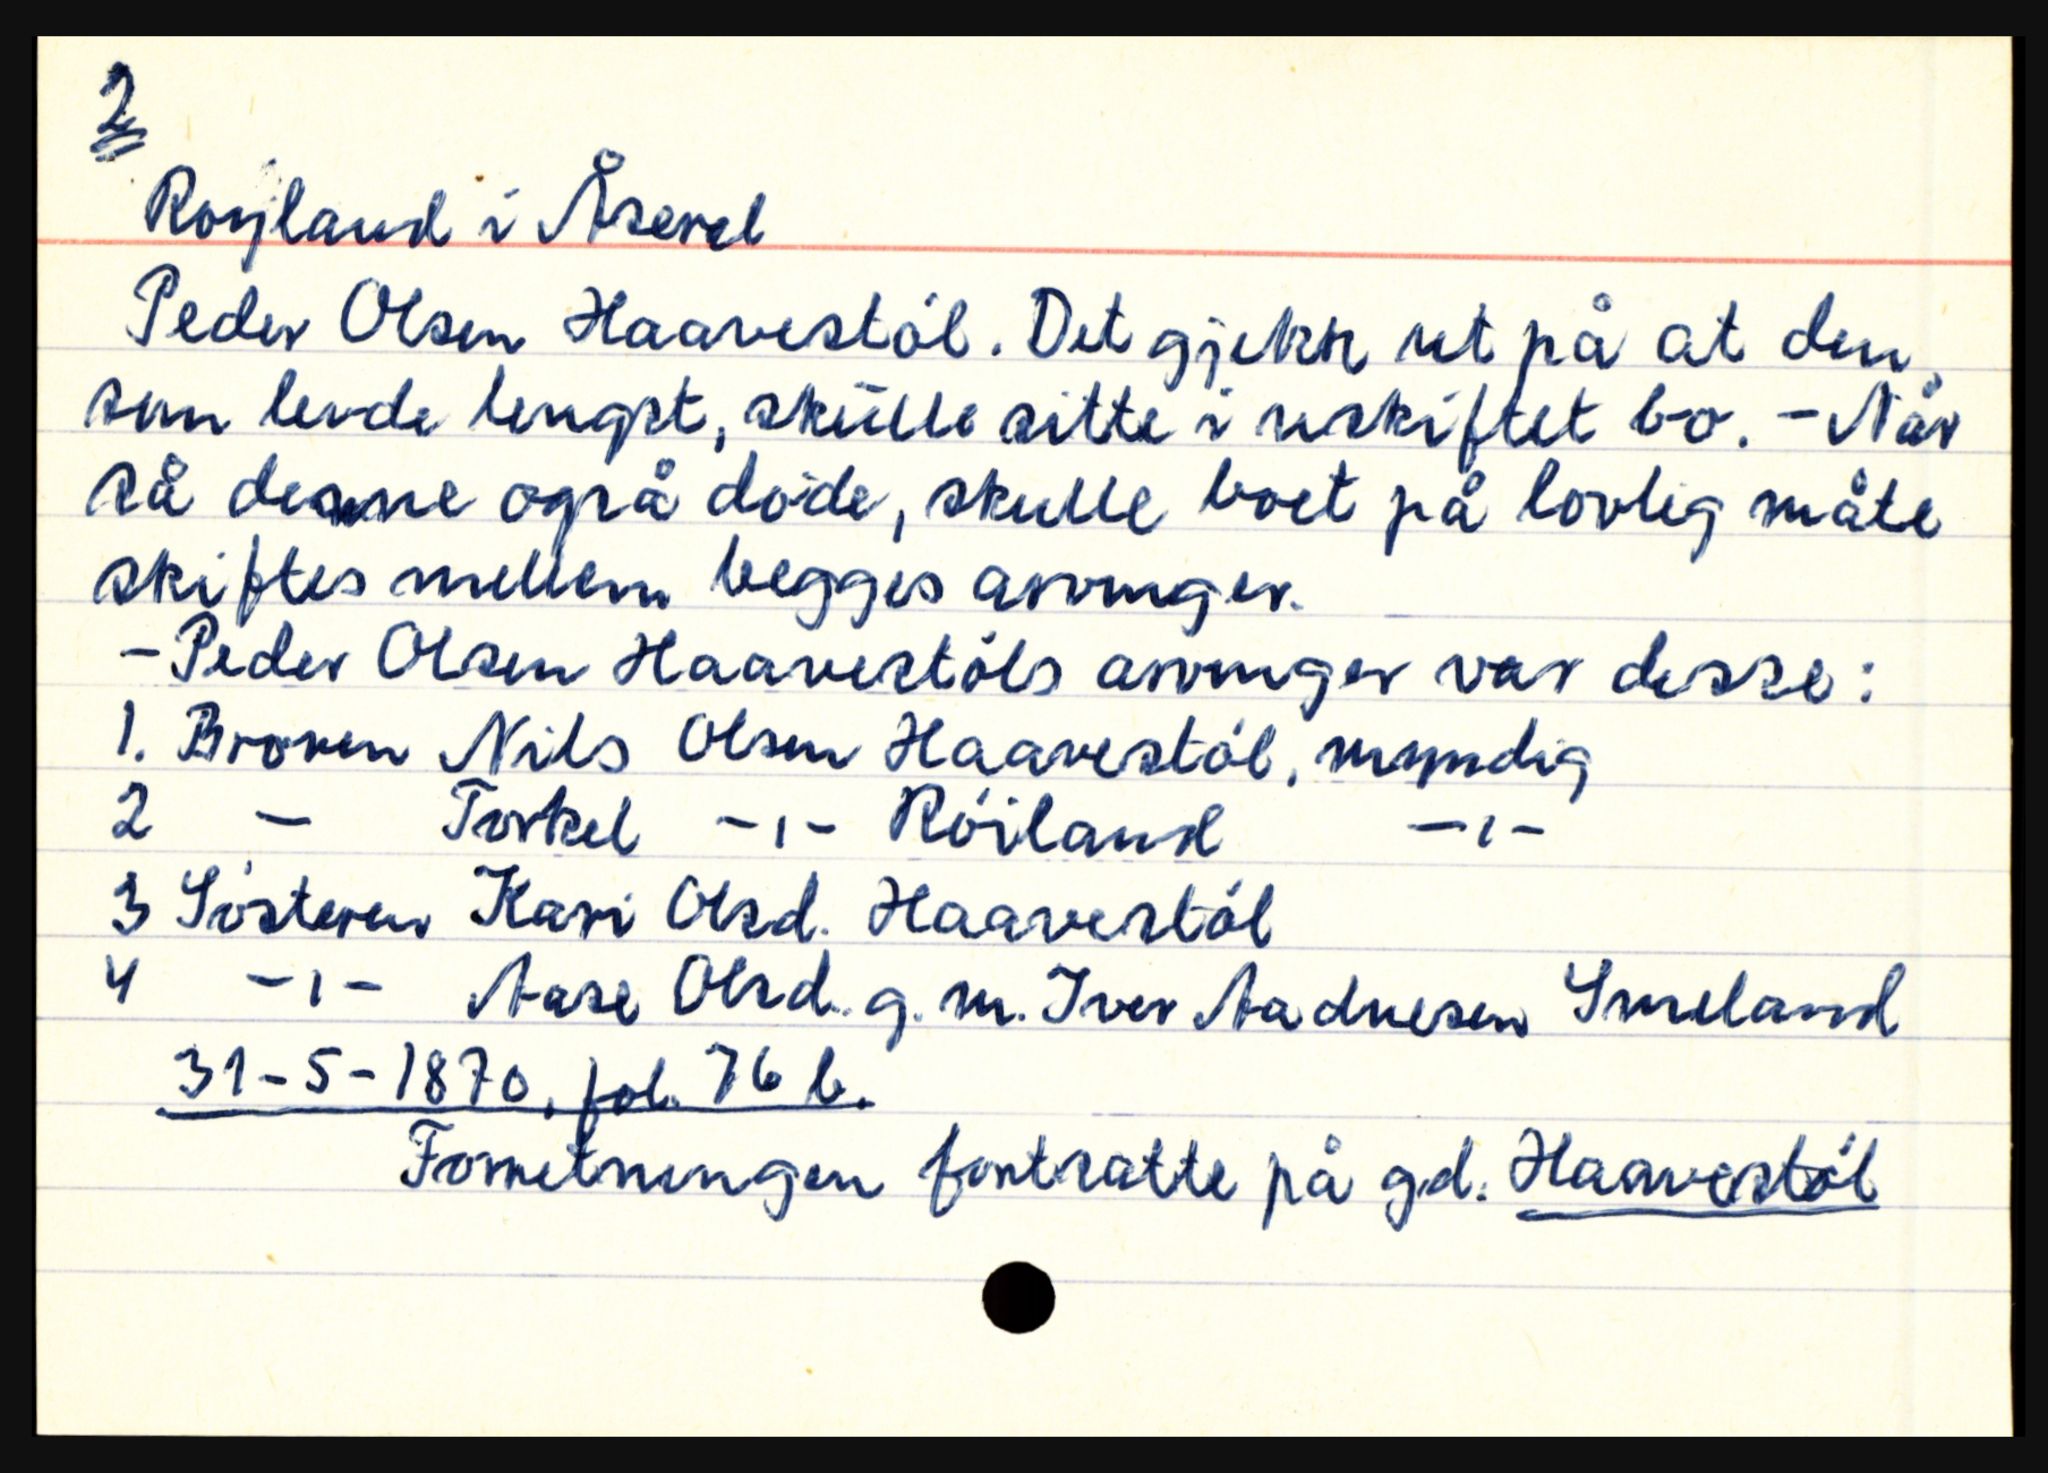 2
Røyland i Åseral
Peder Olsen Haavestøl. Det gjekk ut på at den
som levde lengst, skulle sitte i uskiftet bo. - Når
så denne også døde, skulle boet på lovlig måte
skiftes mellem begges arvinger.
- Peder Olsen Haavestøls arvinger var desse:
1. Broren Nils Olsen Haavestøl, myndig
2 - Torkel -"- Røiland -"-
3 Søsteren Kari Olsd. Haavestøl
4 -"- Aase Olsd. g. m. Iver Aadnesen Smeland
31-5-1870, fol. 76 b.
Forretningen fortsatte på gd. Haavestøl